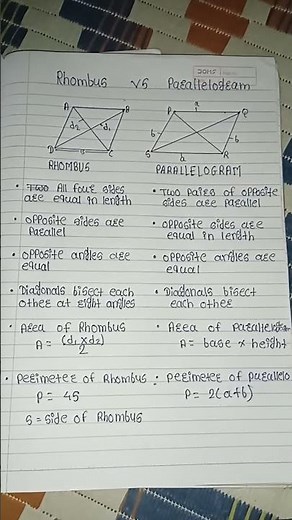 Rhombus VS Parallelogram
A B
d2 d1
D C
a
a
P Q
b b
S R
a
RHOMBUS PARALLELOGRAM
• Two All four sides are equal in length
• Two Paires of opposite sides are parallel
• opposite sides are Parallel
• opposite sides are equal in length
• opposite angles are equal
• opposite angles are equal
• Diagonals bisect each other at right angles
• Diagonals bisect each other
• Area of Rhombus
A = (d1 x d2)
2
• Area of parallelogram
A = base x height
• perimeter of Rhombus
P = 4S
S = side of Rhombus
• perimeter of parallelo
P = 2(a+b)